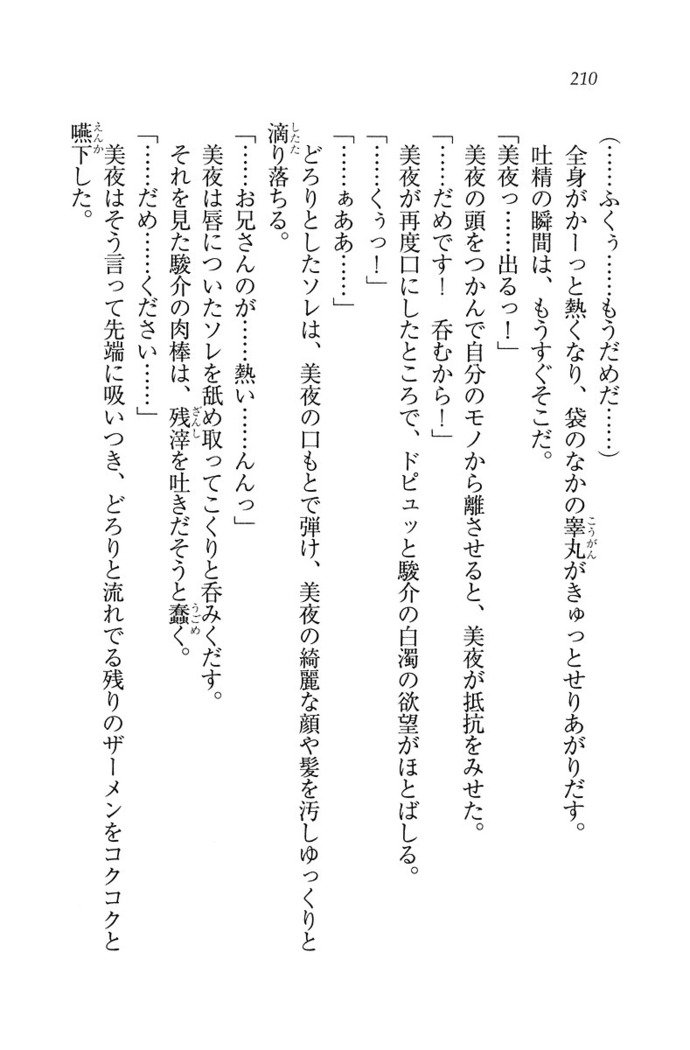 210
(……ふくぅ……もうだめだ……)
こうがん
全身がかーっと熱くなり、袋のなかの睾丸がきゅっとせりあがりだす。
吐精の瞬間は、もうすぐそこだ。
「美夜っ……出るっ！」
美夜の頭をつかんで自分のモノから離させると、美夜が抵抗をみせた。
「……だめです！　呑むから！」
美夜が再度口にしたところで、ドピュッと駿介の白濁の欲望がほとばしる。
「……くぅっ！」
「……ぁああ……」
どろりとしたソレは、美夜の口もとで弾け、美夜の綺麗な顔や髪を汚しゆっくりと
したた
滴り落ちる。
「……お兄さんのが……熱い……んんっ」
美夜は唇についたソレを舐め取ってこくりと呑みくだす。
ざんし
うごめ
それを見た駿介の肉棒は、残滓を吐きだそうと蠢く。
「……だめ……ください……」
美夜はそう言って先端に吸いつき、どろりと流れでる残りのザーメンをコクコクと
えんか
嚥下した。